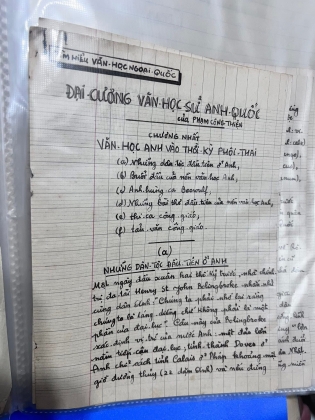 TÌM HIỂU VĂN HỌC NGOẠI QUỐC
ĐẠI CƯƠNG VĂN HỌC SỬ ANH QUỐC
của PHẠM CÔNG THIỆN
CHƯƠNG NHẤT
VĂN HỌC ANH VÀO THỜI KỲ PHÔI THAI
(a) Những dân tộc đầu tiên ở Anh,
(b) Bước đầu của nền văn học Anh,
(c) Anh hùng ca Beowulf,
(d) Những bài thơ đầu tiên của nền văn học Anh,
(e) thi ca công giáo,
(f) tản văn công giáo.
(a)
NHỮNG DÂN TỘC ĐẦU TIÊN Ở ANH
Một ngày đầu xuân hai thế kỷ trước, nhà chính
trị đa tài Henry St John Bolingbroke nhắn nhủ
cùng dân Anh: Chúng ta phải nhớ lại rằng
chúng ta là láng giềng chứ không phải là một
phần của đại lục. Câu này của Bolingbroke
xác định vị trí của nước Anh: một đảo lớn
nằm tiếp cận đại lục; tỉnh thành Dover ở
Anh chỉ cách tỉnh Calais ở Pháp khoảng một
giờ đường thủy (22 dặm Anh) và nếu đứng